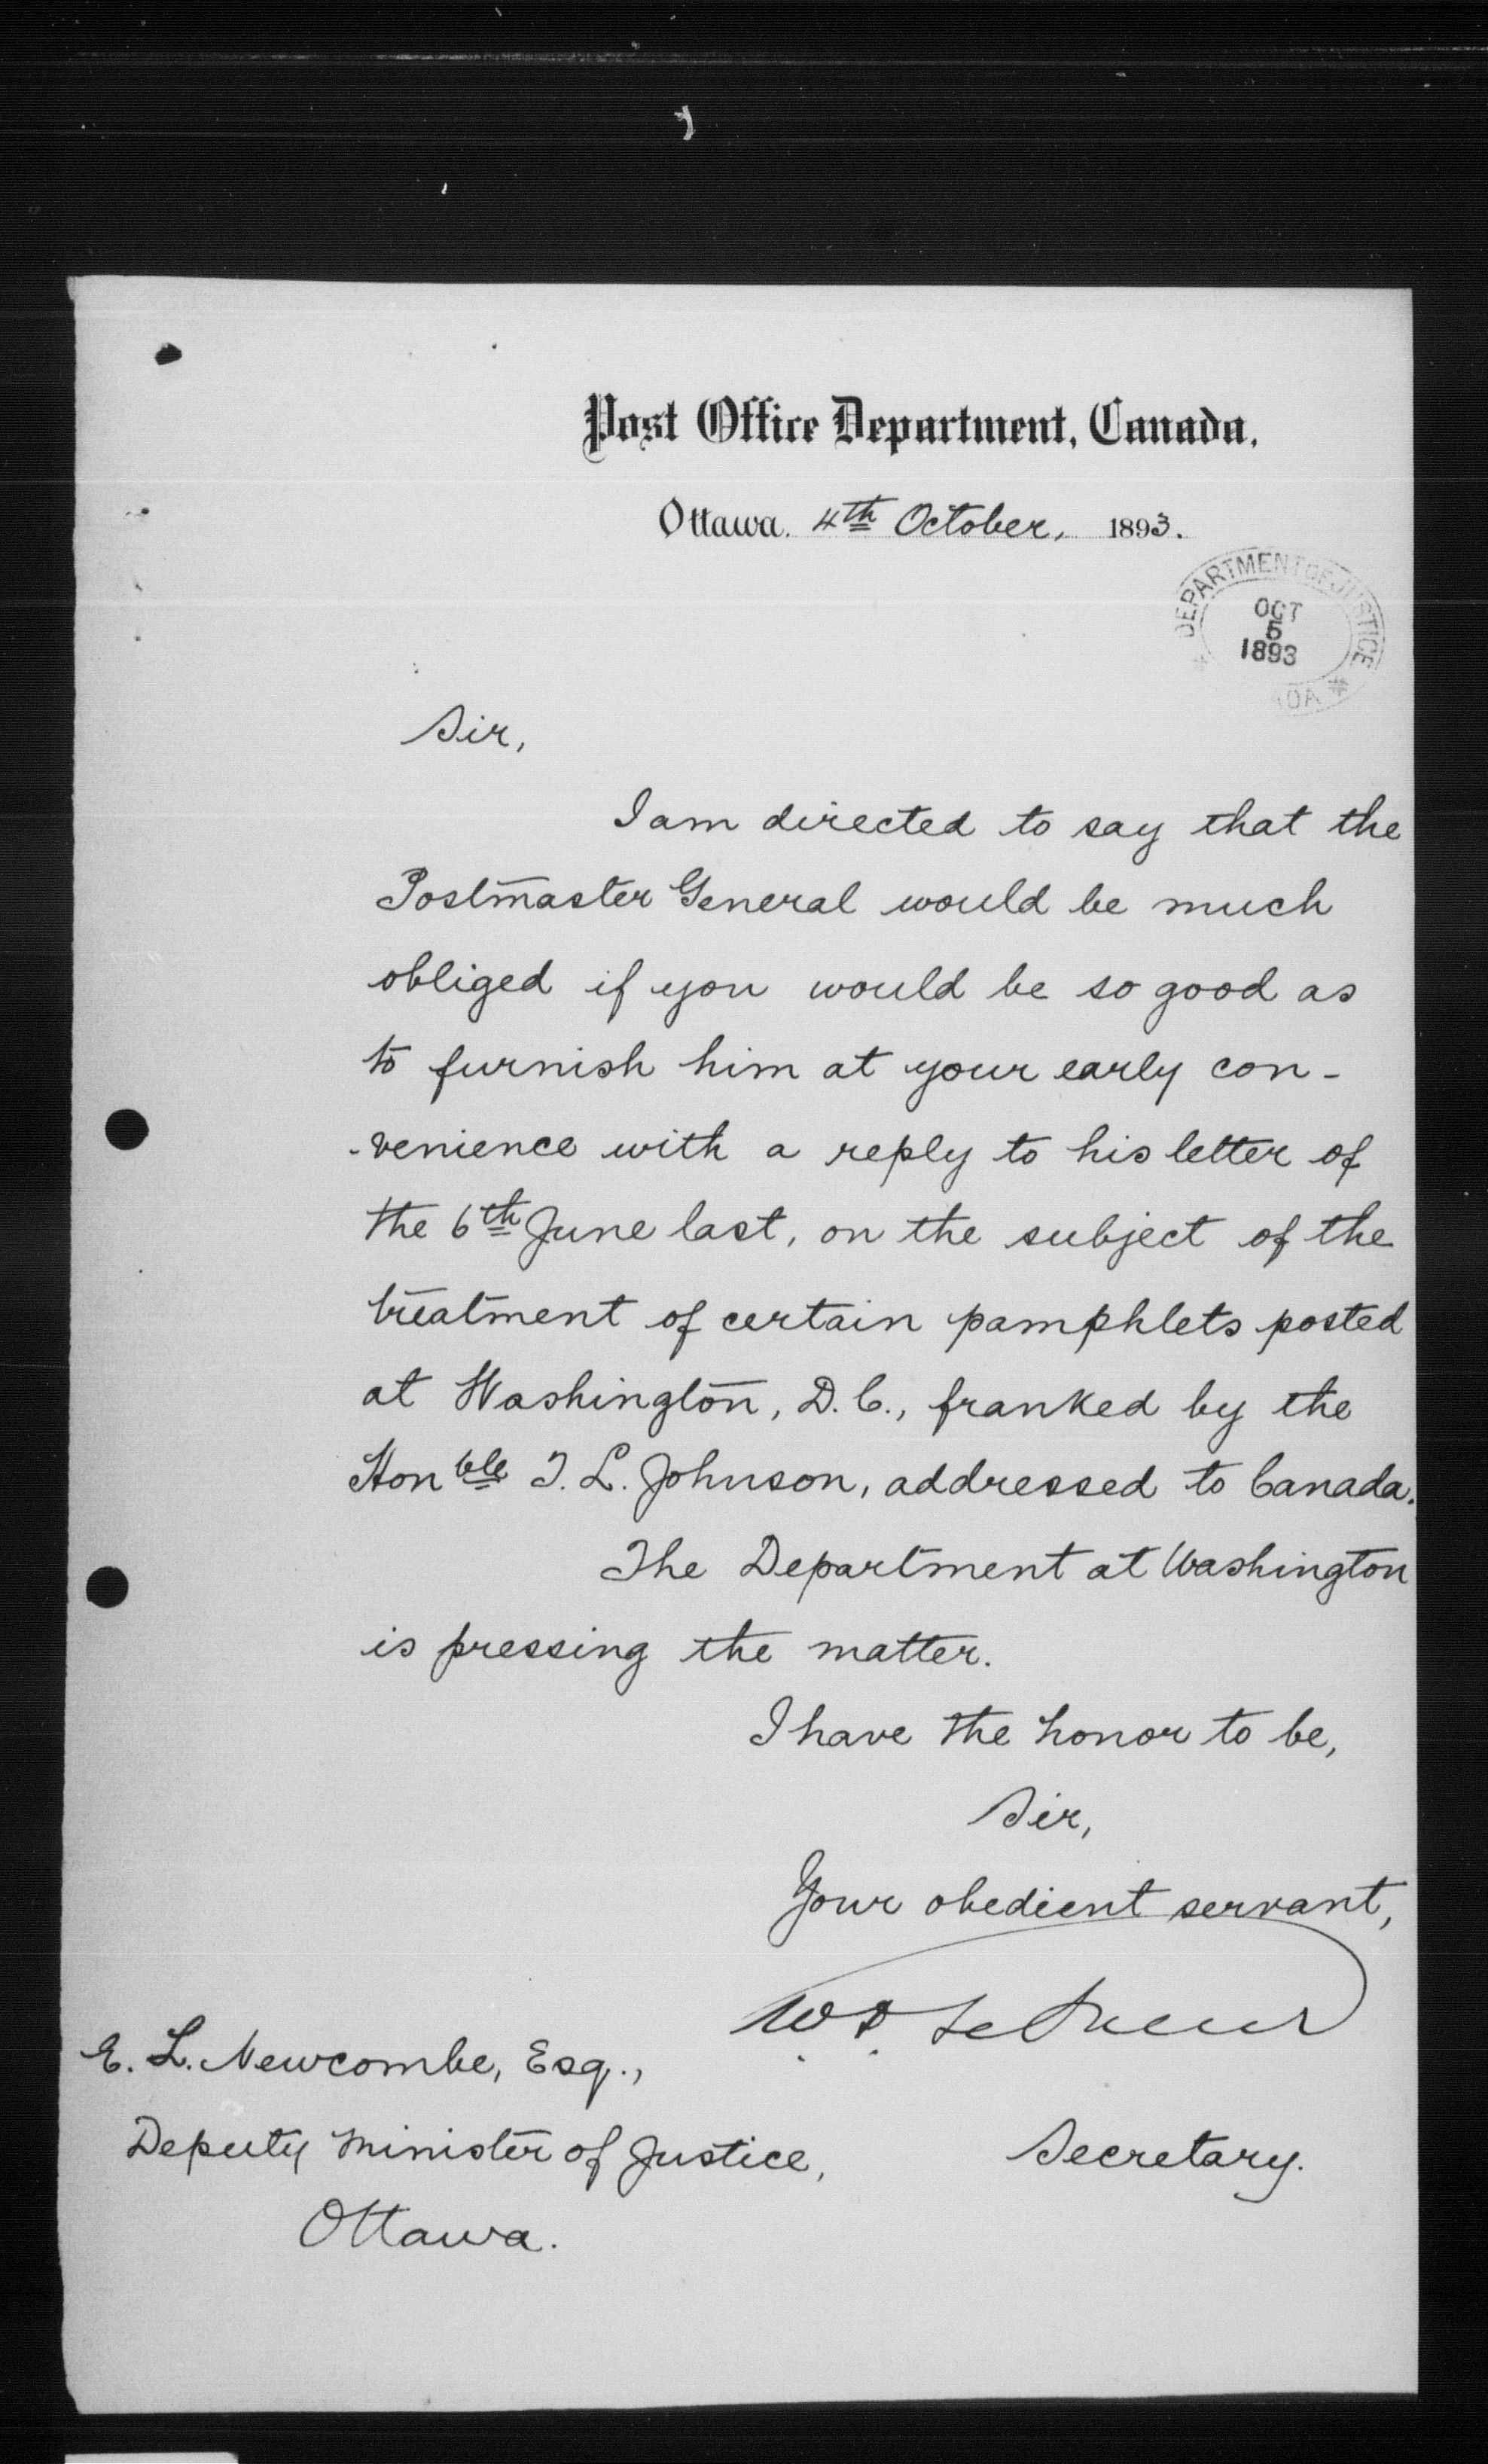 Post Office Department, Canada,
Ottawa. 4th October, 1893.
DEPARTMENT OF JUSTICE
OCT
5
1893
Sir,
I am directed to say that the
Postmaster General would be much
obliged if you would be so good as
to furnish him at your early con-
-venience with a reply to his letter of
the 6th June last, on the subject of the
treatment of certain pamphlets posted
at Washington, D.C., franked by the
Honble T. L. Johnson, addressed to Canada.
The Department at Washington
is pressing the matter.
I have the honor to be,
Sir,
Your obedient servant,
W. D. LeSueur
E. L. Newcombe, Esq.,
Deputy Minister of Justice,
Secretary.
Ottawa.